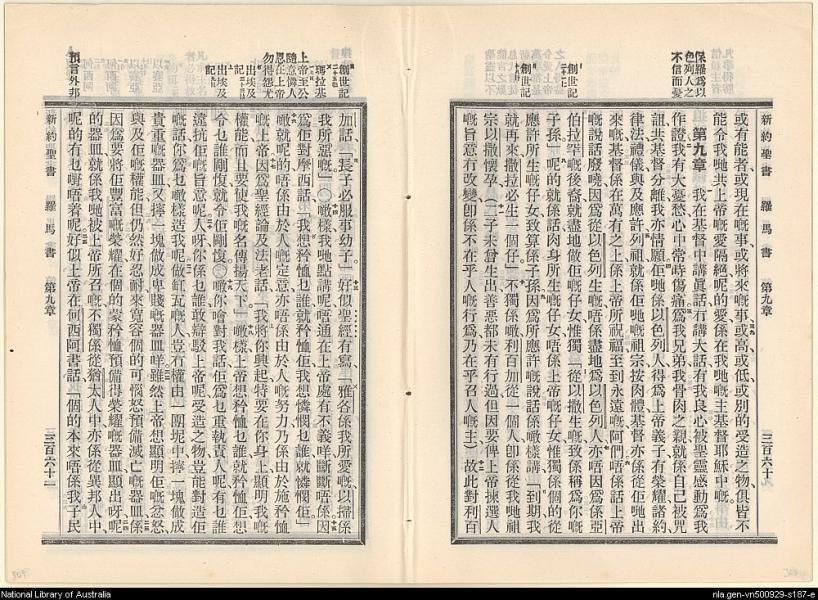 新約聖書 羅馬書 第九章
或有能者或現在嘅事或將來嘅事或高或低或別的受造之物俱皆不
能令我哋共上帝嘅愛隔絕呢的愛係在我哋嘅主基督耶穌中嘅
第九章 我在基督中講眞話冇講大話有我良心被聖靈感動爲我
作證我有大憂愁心中常時傷痛爲我兄弟我骨肉之親就係自己被咒
詛共基督分離我亦情願佢哋係以色列人得爲上帝義子有榮耀諸約
律法禮儀與及應許列祖就係佢哋嘅祖宗按肉體基督亦係從佢哋出
來嘅基督係在萬有之上係上帝所祝福至到永遠嘅阿們唔係話上帝
嘅說話廢嘵因爲從以色列生嘅唔係盡地爲以色列人亦唔因爲係亞
伯拉罕嘅後裔就盡地做佢嘅仔女惟獨「從以撒生嘅致係稱爲你嘅
子孫」呢的就係話肉身所生嘅仔女唔係上帝嘅仔女惟獨係個的從
應許所生嘅仔女致算係子孫因爲所應許嘅說話係噉樣講「到期我
就再來撒拉必生一個仔」不獨係噉利百加從一個人卽係從我哋祖
宗以撒懷孕(二子未曾生出善惡都未有行過但因要俾上帝揀選人
嘅旨意冇改變卽係不在乎人嘅行爲乃在乎召人嘅主)故此對利百
保羅爲以
色列人之
不信而憂
創世記
創世記
新約聖書 羅馬書 第九章 三百六十二
加話「長子必服事幼子」好似聖經有寫「雅各係我所愛嘅以掃係
我所惡嘅」噉樣我哋點講呢唔通在上帝處有不義咩斷斷唔係因
爲佢對摩西話「我想矜恤乜誰就矜恤佢我想憐憫乜誰就憐憫佢」
噉就呢的唔係由於人嘅定意亦唔係由於人嘅努力乃係由於施矜恤
嘅上帝因爲聖經論及法老話「我將你興起特要在你身上顯明我嘅
權能而且要使我嘅名傳揚天下」噉樣上帝想矜恤乜誰就矜恤佢想
令乜誰剛復就令佢剛復噉你會對我話佢爲乜重執責人呢有乜誰
違抗佢嘅旨意呢人呀你係乜誰敢辯駁上帝呢受造之物豈能對造佢
嘅話你爲乜噉樣造我呢做缸瓦嘅人豈冇權由一團坭中擰一塊做成
貴重嘅器皿又擰一塊做成卑賤嘅器皿咩雖然上帝想顯明佢嘅忿怒
與及佢嘅權能但仍然好忍耐來寬容個的可惱怒預備滅亡嘅器皿係
因爲要將佢豐富嘅榮耀在個的蒙矜恤預備得榮耀嘅器皿顯出呀呢
的器皿就係我哋被上帝所召嘅不獨係從猶太人中亦係從異邦人中
呢的有乜嘢唔着呢好似上帝在何西阿書話「個的本來唔係我子民
創世記
瑪拉基
上帝至公
隨意憐人
恩在上帝
勿得怨尤
出埃及
記
出埃及
記
預言外邦
National Library of Australia
nla.gen-vn500929-s187-e